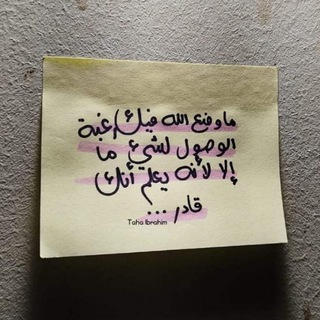 ما وضع الله فيك رغبة
الوصول لشيء ما
إلا لأنه يعلم أنك
قادر ...
Taha Ibrahim